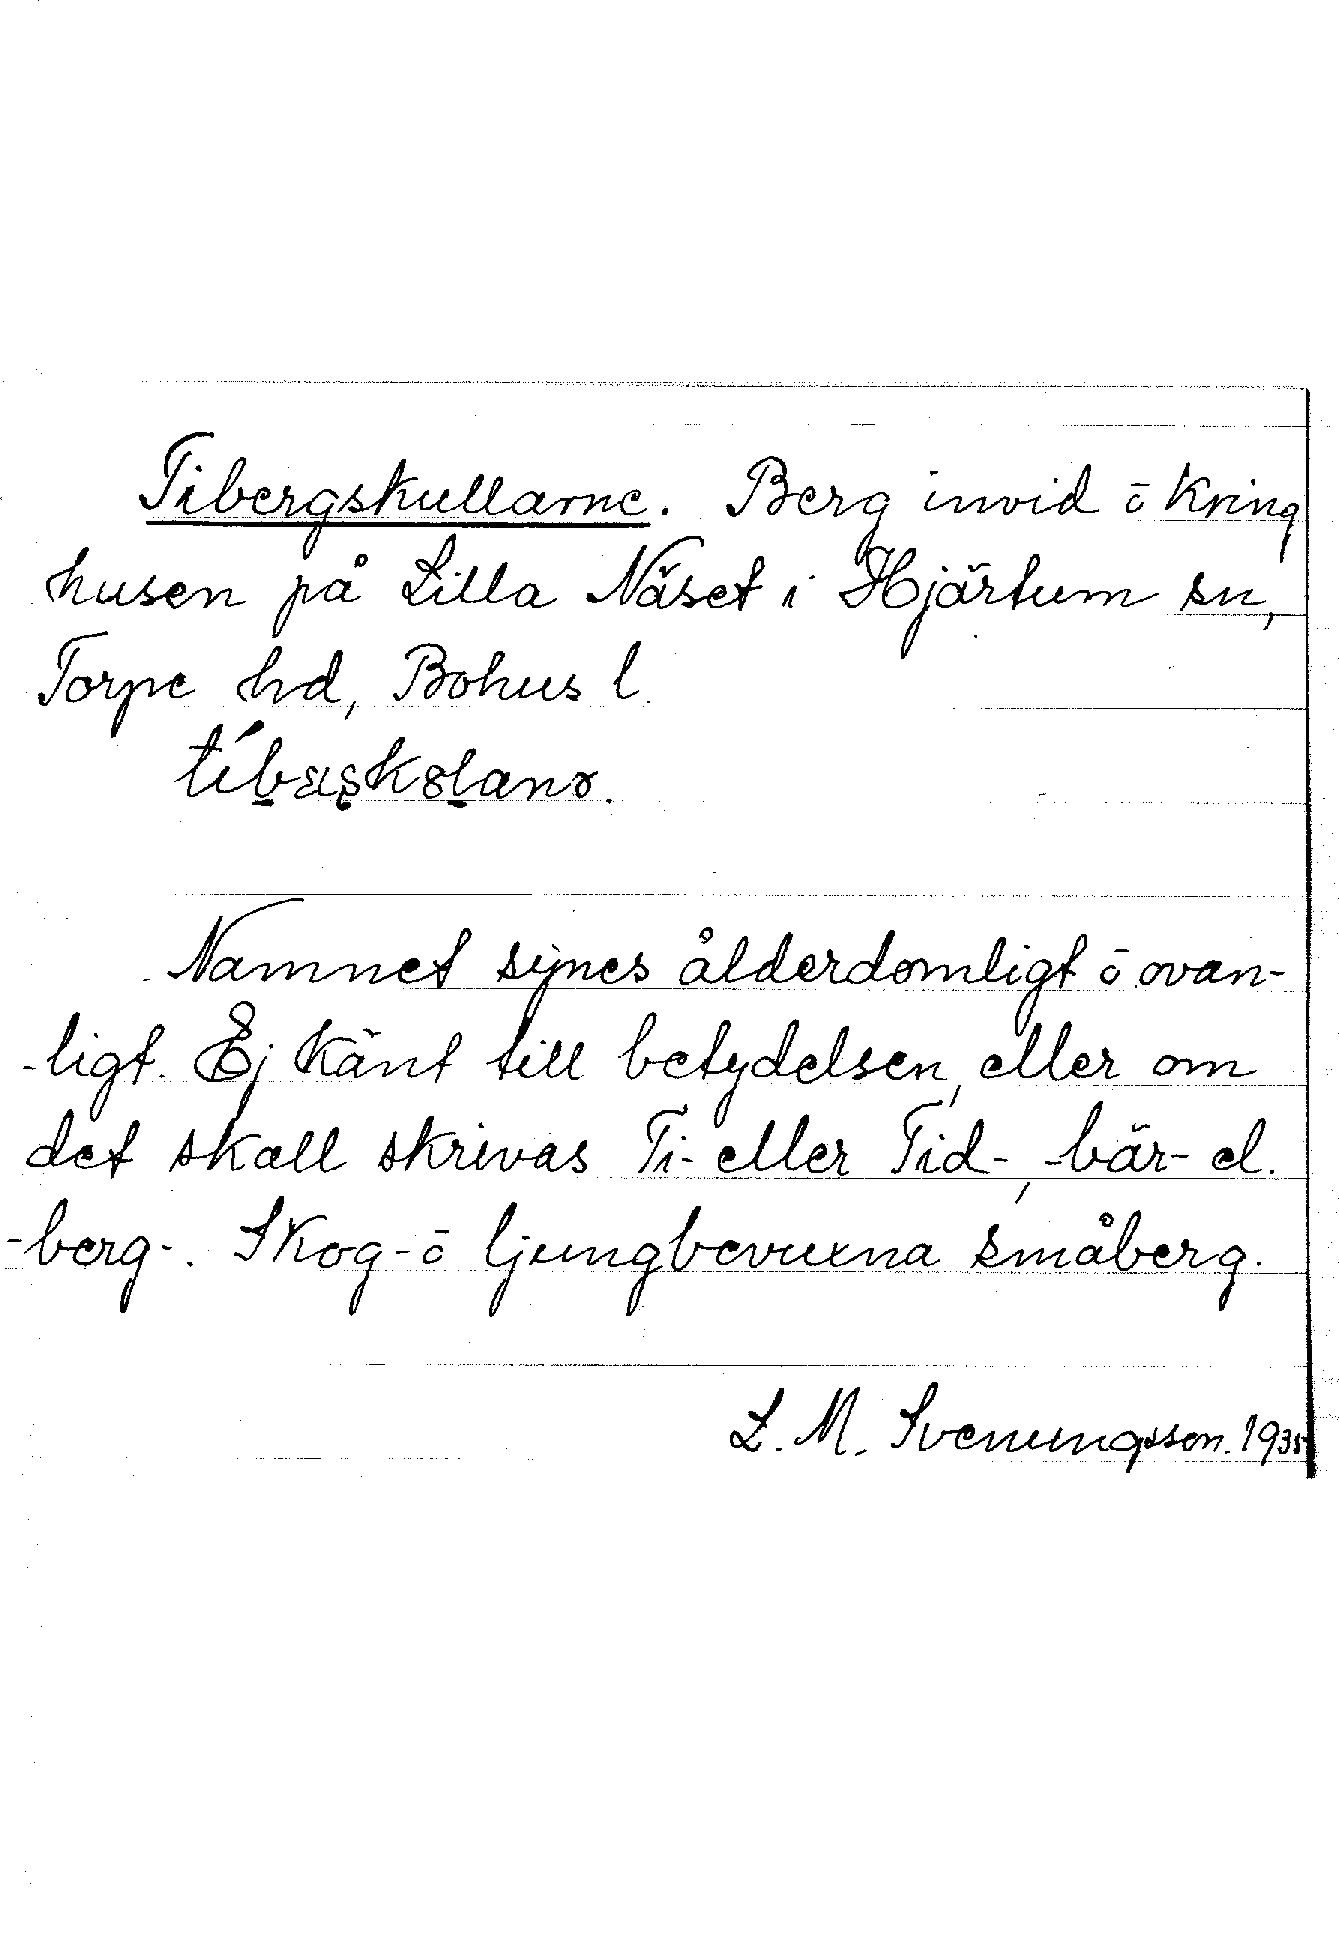 Tibergskullarne. Berg invid ō kring
husen på Lilla Näset i Hjärtum sn,
Torpe hd, Bohus l.
Namnet synes ålderdomligt ō ovan-
-ligt. Ej känt till betydelsen, eller om
det skall skrivas Ti- eller Tid-, -bär- el.
-berg-. Skog- ō ljungbevuxna småberg.
L. M. Svenungsson. 1935